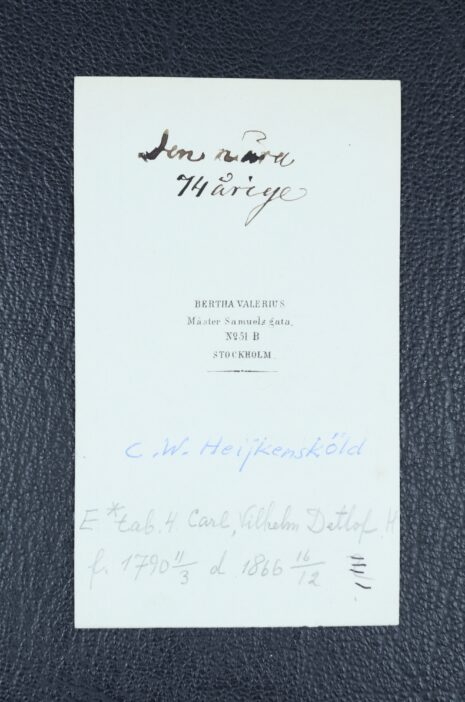 den nära
74 årige
BERTHA VALERIUS
Mäster Samuels gata.
No 51 B
STOCKHOLM.
C.W. Heijkensköld
E * tab. 4 Carl, Vilhelm Detlof H
f. 1790 11/3 d 1866 16/12